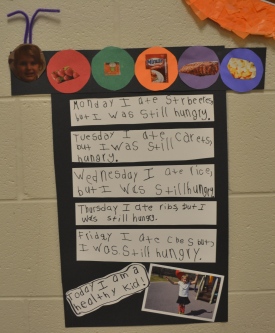 Monday I ate Strbeeres,
but I was still hungry.
Tuesday I ate carets,
but I was still
hungry.
Wednesday I ate rice,
but I was still hungry
Thursday I ate ribs, but I
was still hungy.
Friday I ate chos but,
I was still hungry.
Today I am a
healthy kid!